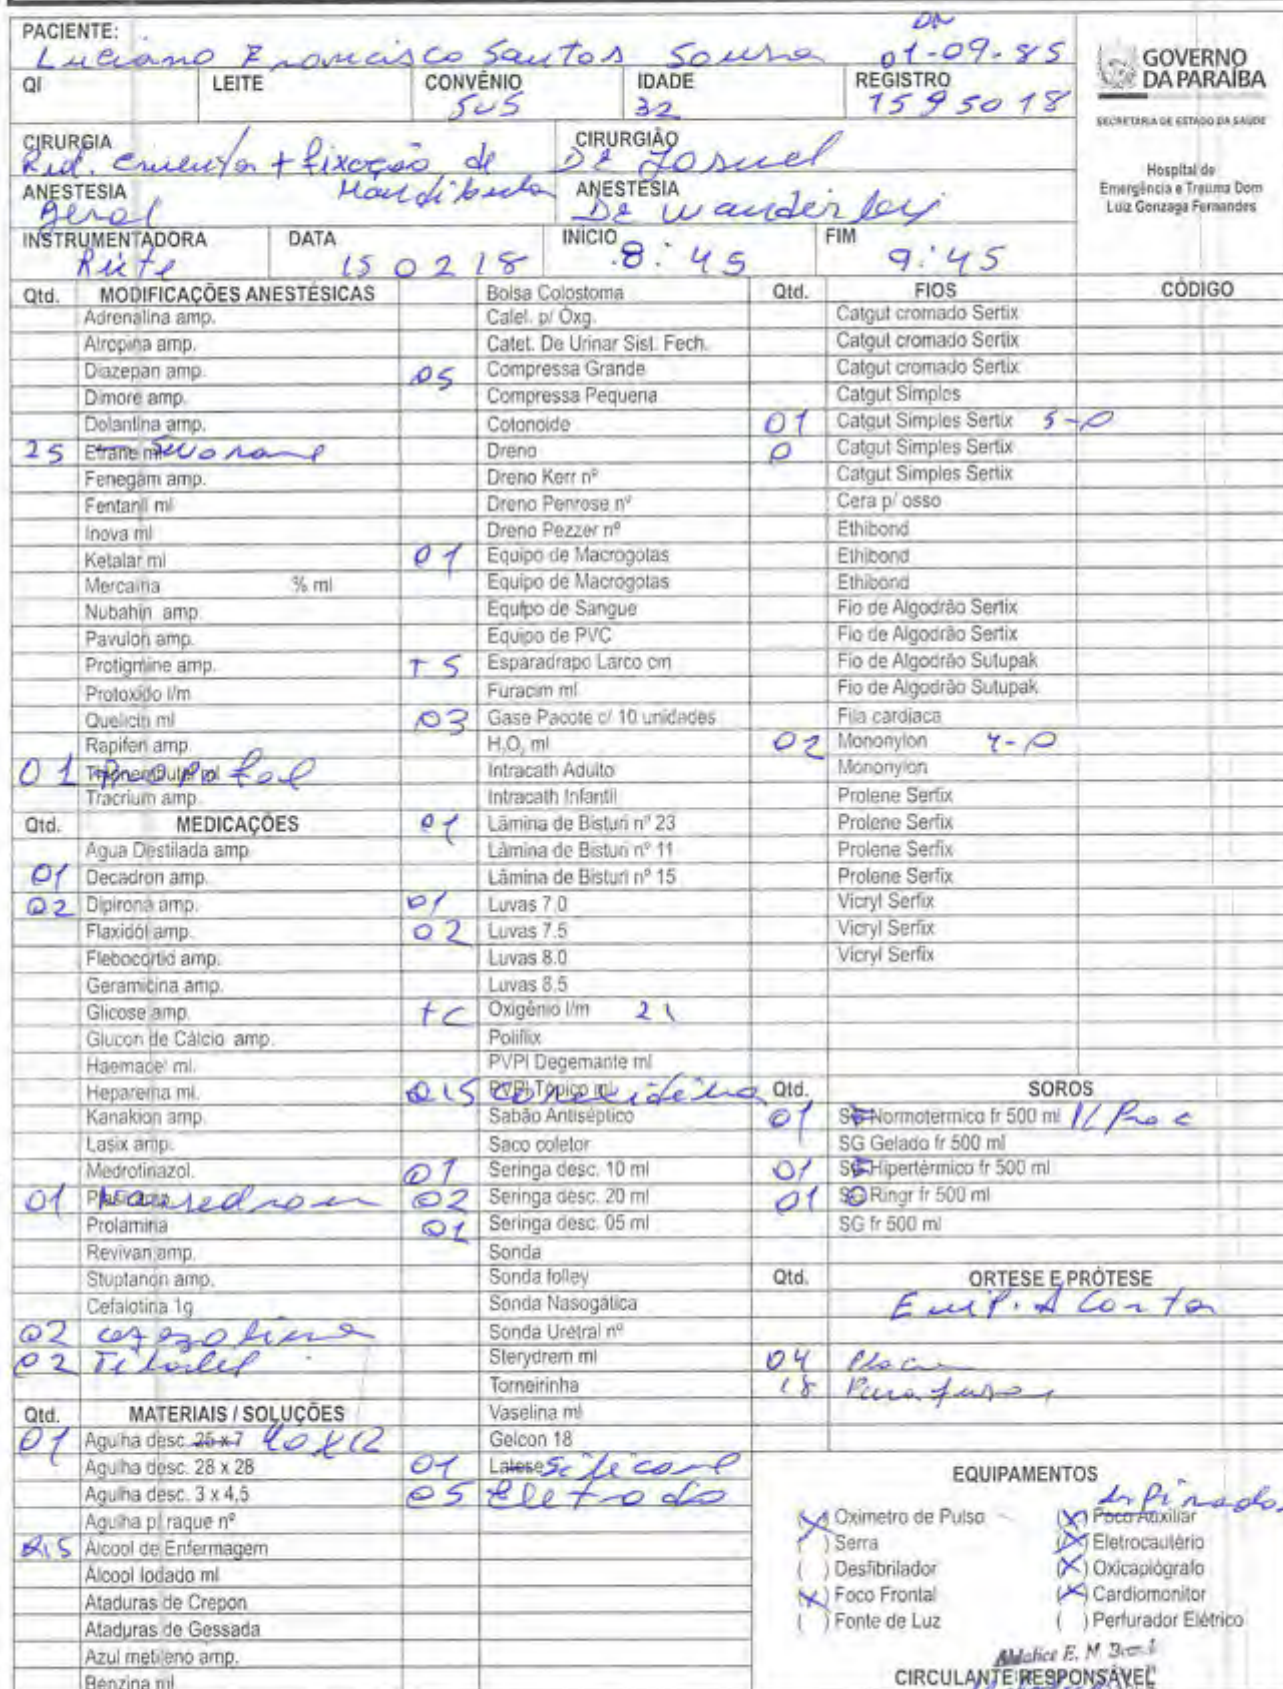 PACIENTE:
DN
Luciano Francisco Santos Sousa 01-09-85
QI LEITE CONVÊNIO IDADE REGISTRO
SUS 32 1595018
GOVERNO
DA PARAÍBA
SECRETARIA DE ESTADO DA SAÚDE
Hospital de
Emergência e Trauma Dom
Luiz Gonzaga Fernandes
CIRURGIA CIRURGIÃO
Red. Cruenta + fixação de Mandibula Dr Josuel
ANESTESIA ANESTESIA
Geral Dr Wanderley
INSTRUMENTADORA DATA INÍCIO FIM
Rute 15 02 18 8:45 9:45
Qtd. MODIFICAÇÕES ANESTÉSICAS
Adrenalina amp.
Atropina amp.
Diazepan amp.
Dimore amp.
Dolantina amp.
25 Etrane ml
Fenegam amp.
Fentanil ml
Inova ml
Ketalar ml
Mercaina % ml
Nubahin amp.
Pavulon amp.
Protigmine amp.
Protoxido l/m
Quelicin ml
Rapifen amp
01 Propofol
Tracrium amp
Qtd. MEDICAÇÕES
Agua Destilada amp
01 Decadron amp.
02 Dipirona amp.
Flaxidól amp.
Flebocortid amp.
Geramicina amp.
Glicose amp.
Glucon de Cálcio amp.
Haemacel ml.
Heparema ml.
Kanakion amp.
Lasix amp.
Medrotinazol.
01 Nausedron
Prolamina
Revivan amp.
Stuptanon amp.
Cefalotina 1g
02 cefazolina
02 Tilatil
Qtd. MATERIAIS / SOLUÇÕES
01 Agulha desc. 25 x 7 40x12
Agulha desc. 28 x 28
Agulha desc. 3 x 4,5
Agulha p/ raque nº
Álcool de Enfermagem
Álcool Iodado ml
Ataduras de Crepon
Ataduras de Gessada
Azul metileno amp.
Benzina ml
Bolsa Colostoma
Catet. p/ Oxg.
Catet. De Urinar Sist. Fech.
05 Compressa Grande
Compressa Pequena
Cotonoide
Dreno
Dreno Kerr nº
Dreno Penrose nº
Dreno Pezzer nº
01 Equipo de Macrogotas
Equipo de Macrogotas
Equipo de Sangue
Equipo de PVC
TS Esparadrapo Larco cm
Furacim ml
03 Gase Pacote c/ 10 unidades
H₂O₂ ml
Intracath Adulto
Intracath Infantil
01 Lâmina de Bisturi nº 23
Lâmina de Bisturi nº 11
Lâmina de Bisturi nº 15
01 Luvas 7.0
02 Luvas 7.5
Luvas 8.0
Luvas 8.5
Oxigênio l/m
Poliflix
PVPI Degemante ml
PVPI Tópico ml
Sabão Antiséptico
Saco coletor
01 Seringa desc. 10 ml
02 Seringa desc. 20 ml
01 Seringa desc. 05 ml
Sonda
Sonda folley
Sonda Nasogática
Sonda Uretral nº
Sterydrem ml
Torneirinha
Vaselina ml
Gelcon 18
01 Latese Silicone
05 Eletrodo
Qtd. FIOS CÓDIGO
Catgut cromado Sertix
Catgut cromado Sertix
Catgut cromado Sertix
Catgut Simples
01 Catgut Simples Sertix 5-0
Catgut Simples Sertix
Catgut Simples Sertix
Cera p/ osso
Ethibond
Ethibond
Ethibond
Fio de Algodrão Sertix
Fio de Algodrão Sertix
Fio de Algodrão Sutupak
Fio de Algodrão Sutupak
Fita cardíaca
02 Mononylon 4-0
Mononylon
Prolene Serfix
Prolene Serfix
Prolene Serfix
Prolene Serfix
Vicryl Serfix
Vicryl Serfix
Vicryl Serfix
Qtd. SOROS
01 Normotermico fr 500 ml
SG Gelado fr 500 ml
01 Hipertérmico fr 500 ml
01 Ringr fr 500 ml
SG fr 500 ml
Qtd. ORTESE E PRÓTESE
04 Placa
18 Parafusos
EQUIPAMENTOS
(X) Oximetro de Pulso
( ) Serra
( ) Desfibrilador
(X) Foco Frontal
( ) Fonte de Luz
Aspirador
(X) Foco Auxiliar
(X) Eletrocautério
(X) Oxicapiógrafo
(X) Cardiomonitor
( ) Perfurador Elétrico
CIRCULANTE RESPONSÁVEL